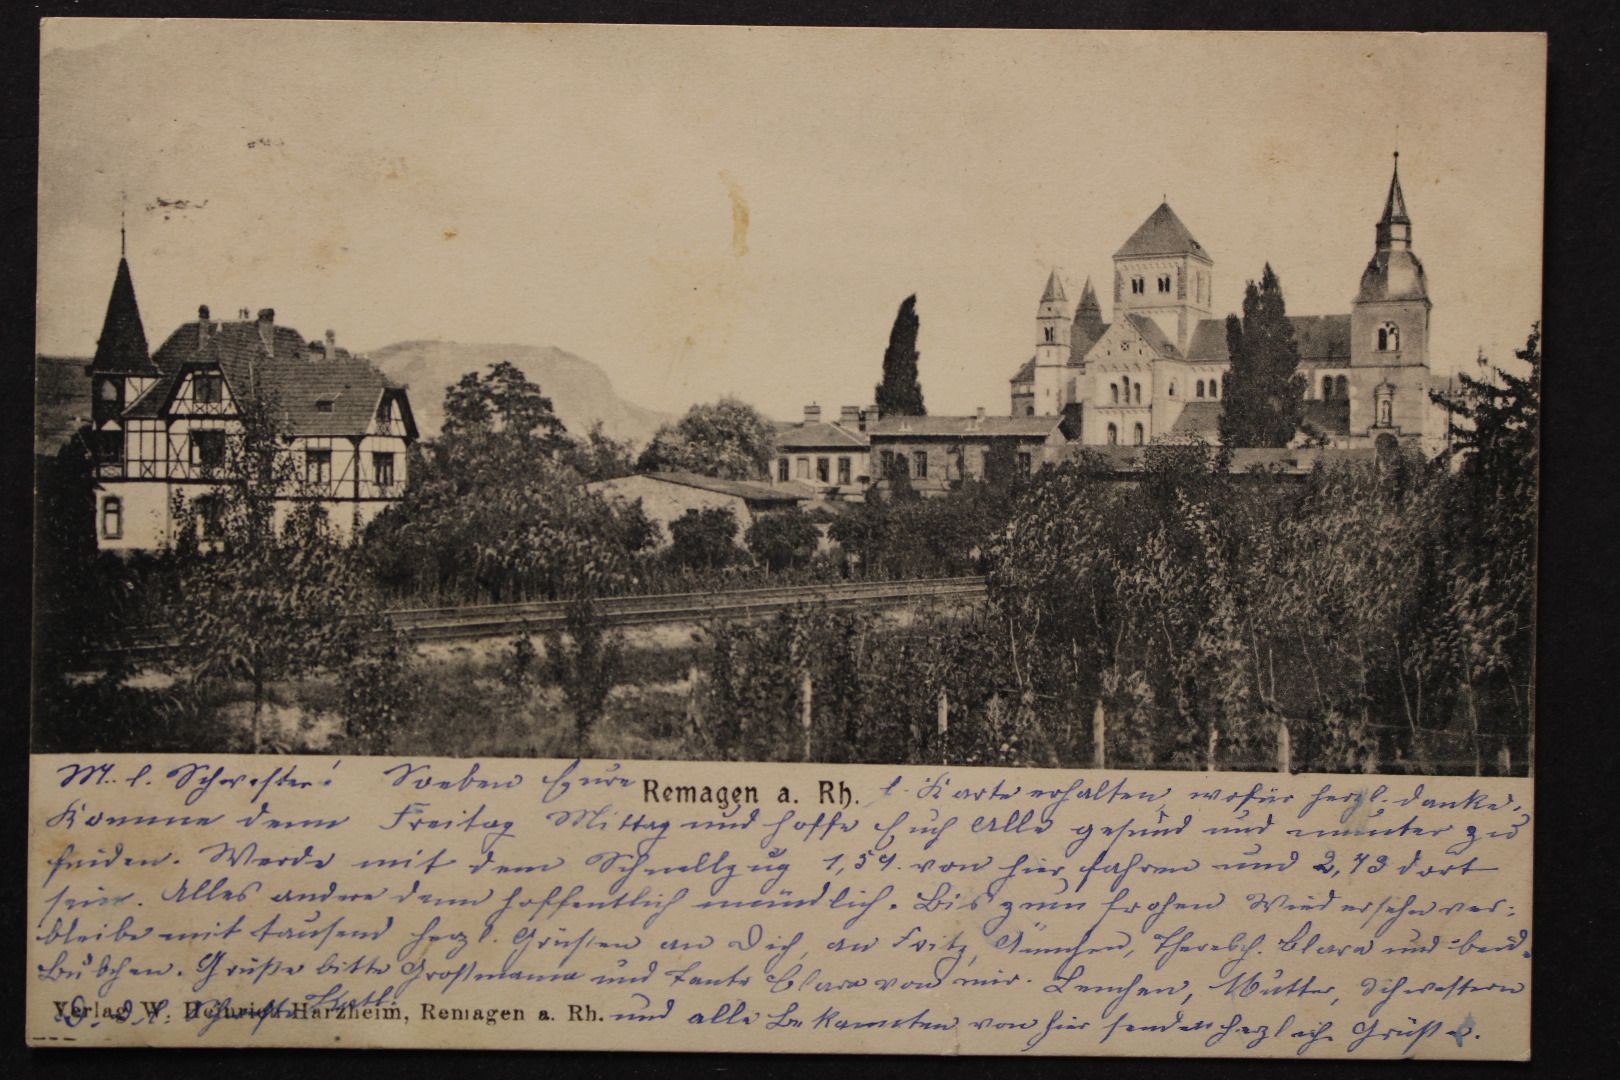 M. l. Schwester! Soeben Eure Remagen a. Rh. l. Karte erhalten, wofür herzl. danke.
Komme denn Freitag Mittag und hoffe Euch Alle gesund und munter zu
finden. Werde mit dem Schnellzug 1,54 von hier fahren und 2,43 dort
sein. Alles andere dann hoffentlich mündlich. Bis zum frohen Wiedersehn ver-
bleibe mit tausend herzl. Grüßen an Dich, an Fritz, Theresch. Clara und beid.
Bübchen. Grüße bitte Großmama und Tante Clara von mir. Lenchen, Mutter, Schwestern
Verlag W. Heinrich Harzheim, Remagen a. Rh. und alle Bekannten von hier senden herzliche Grüße.